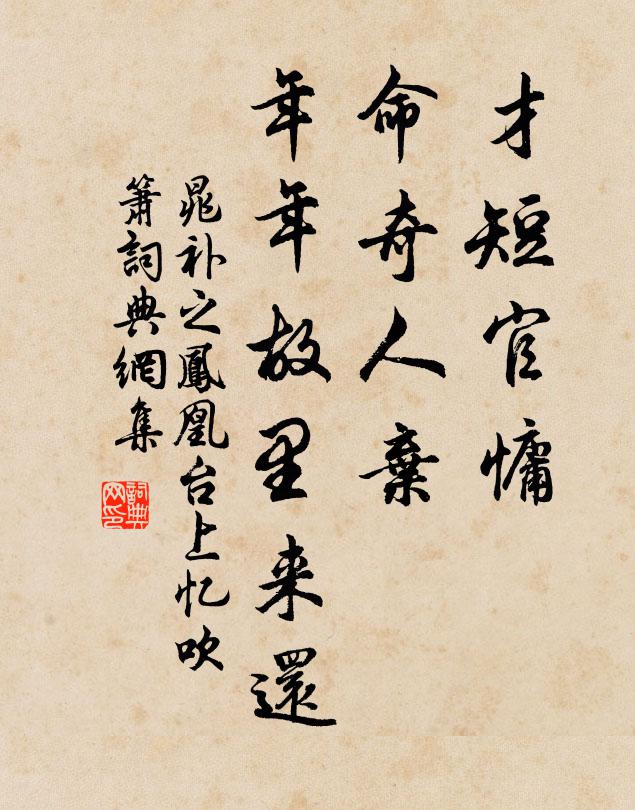 才短官慵
命奇人棄
年年故里来還
晁补之鳳凰台上忆吹
簫詞典網集
詞典
网印